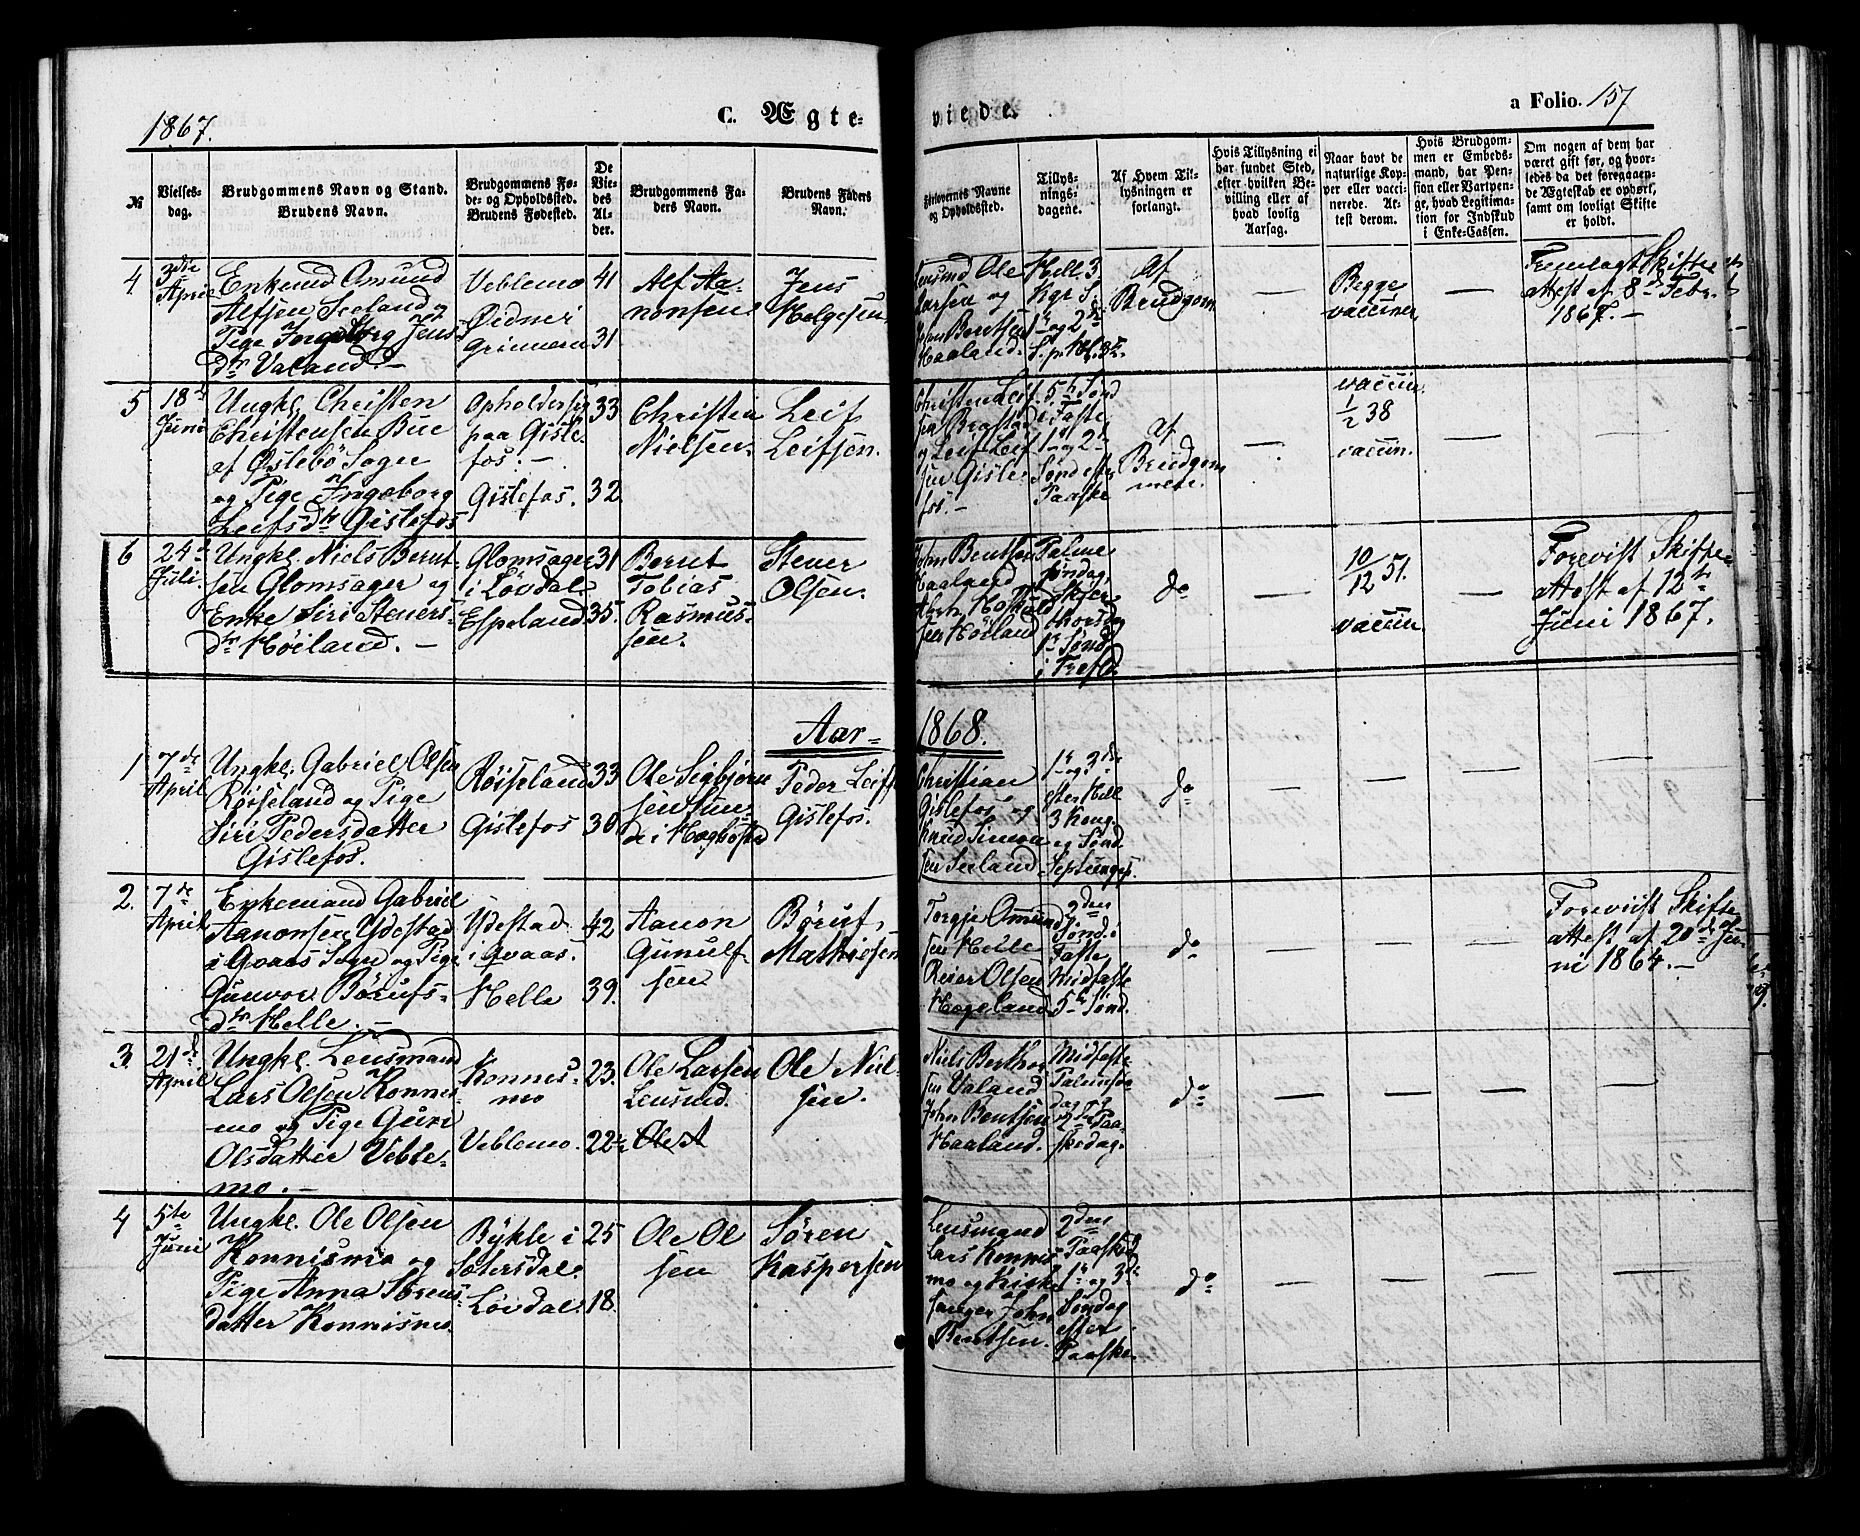 1867.
C. Ægte-
viede.
a Folio. 157
№
Vielses-
dag.
Brudgommens Navn og Stand.
Brudens Navn.
Brudgommens Fø-
de- og Opholdssted.
Brudens Fødested.
De
Vie-
des
Al-
der.
Brudgommens Fa-
ders Navn.
Brudens Faders
Navn.
Forlovernes Navne
og Opholdssted.
Tillys-
nings-
dagene.
Af Hvem Til-
lysningen er
forlangt.
Hvis Tillysning ei
har fundet Sted,
efter hvilken Be-
villing eller af
hvad lovlig
Aarsag.
Naar havt de
naturlige Kop-
per eller vacci-
nerede. At-
test derom.
Hvis Brudgom-
men er Embeds-
mand, har Pen-
sion eller Vartpen-
ge, hvad Legitima-
tion for Indskud
i Enke-Cassen.
Om nogen af dem har
været gift før, og hvor-
ledes da det foregaaen-
de Ægteskab er ophørt,
samt om lovligt Skifte
er holdt.
4.
3die
April
Enkemd Omund
Alfsen Seeland og
Pige Ingeborg Jens
dtr Valand. —
Veblemo
Øidnei
Grinnern
41
31
Alf Aa-
nonsen
Jens
Helgesen.
Lensmd Ole
Larsen og
John Bentsen
Haaland.
Hell 3
Kgr S.
1n og 2d
Af
Brudgom
—
Begge
vacciner
—
Fremlagt Skifte
attest af 8de Febr.
1867. —
5
18de
Juni
Ungkl. Christen
Christensen Bue
af Øslebö Sogn
og Pige Ingeborg
Leifsdtr Gislefos
Opholder sig
paa Gisle-
fos. —
Gislefos.
33
32
Christen
Nielsen.
Leif
Leifsen.
Christen Leif
sen Bragstad
og Leif Leif
sen Gisle-
fos. —
5te Sönd
i Faste
1n og 2d
Sönd efter
Paaske
af
Brudgom
men
—
vaccin.
1/2 38
vaccin.
—
6
24de
Juli.
Ungkl. Niels Bernt-
sen Glomsager og
Enke Siri Steners-
dtr Höiland. —
Glomsager
i Lövdal
Espeland
31
35.
Bernt
Tobias
Rasmus-
sen.
Stener
Olsen.
John Bentsen
Haaland
sen Höiland
Palme
söndag,
Skjær
thorsdag
1n Sönd
i Treftd.
do
—
10/12 51.
vaccin.
—
Forevist Skifte
attest af 12te
Juni 1867.
Aar-
1868.
1
7de
April
Ungkl. Gabriel Olsen
Röiseland og Pige
Siri Pedersdatter
Gislefos.
Röiseland
Gislefos
33
30.
Ole Sigbjörn
sen Sun-
de i Hægbosta
Peder Leifs
Gislefos.
Christian
Gislefos og
Knud Simon
sen Seeland
1n og 3die
efter Hell
3 Kong.
og Sönd.
Septuages.
do
—
2.
7de
April
Enkemand Gabriel
Aanonsen Ydestad
i Qvaas Sogn og Pige
Gunvor Börufs-
dtr Helle. —
Ydestad
i Qvaas.
Helle
42
39.
Aanon
Gunulf
sen
Böruf,
Mathisen
Torgje Omund
sen Helle
Reier Olsen
Hageland
2den
Sönd. i
Faste
Midfaste
5te Sönd.
do
—
Foreviist Skifte
attest af 20de Ju-
ni 1864. —
3.
21de
April
Ungkl. Lensmand
Lars Olsen Konnes-
mo og Pige Guri
Olsdatter Veble-
mo. —
Konnes-
mo
Veblemo.
23.
22
Ole Larsen
Lensmd.
Ole A
Ole Niel-
sen.
Niels Berthe
sen Valand
John Bentsen
Haaland.
Midfaste
Palmesön
dag
2den Paa-
skedag.
do
—
4
5te
Juni
Ungkl. Ole Olsen
Konnismo og
Pige Anna Sörens-
datter Konnismo.
Bykle i
Sætersdal.
Lövdal
25
18.
Ole Ol
sen
Sören
Kaspersen
Lensmand
Lars Konnis
mo og Kirke
sanger John
Bentsen.
2den
Paaskd
1n og 3die
Söndag
efter
Paaske.
do
—